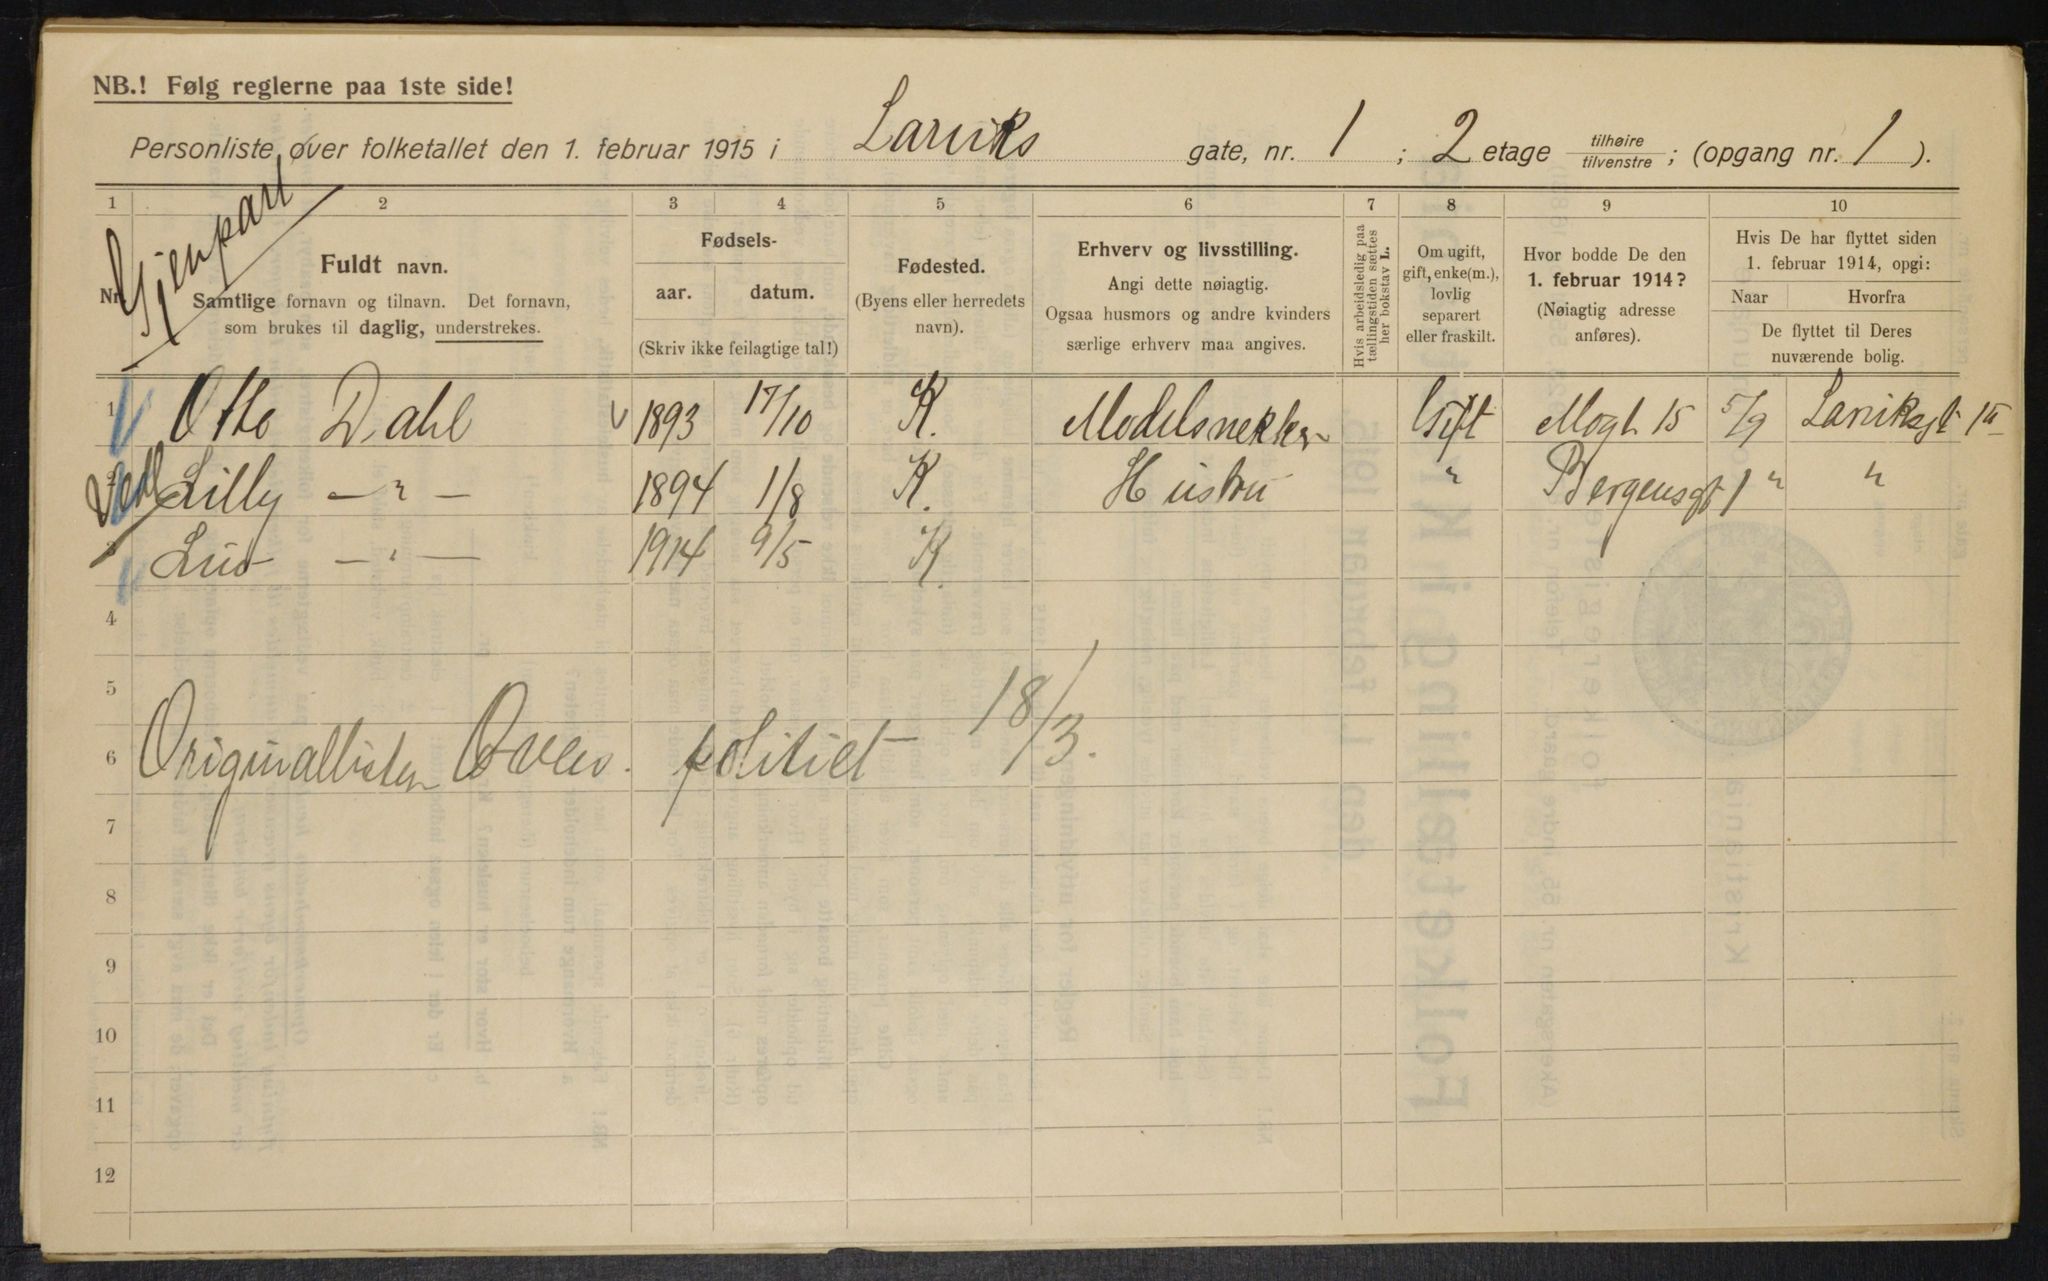 NB.! Følg reglerne paa 1ste side!
Personliste over folketallet den 1. februar 1915 i Larviks gate, nr. 1 ; 2 etage tilhøire tilvenstre ; (opgang nr. 1 ).
Gjenpart
1 2 3 4 5 6 7 8 9 10
Nr.
Fuldt navn.
Samtlige fornavn og tilnavn. Det fornavn,
som brukes til daglig, understrekes.
Fødsels-
aar. datum.
(Skriv ikke feilagtige tal!)
Fødested.
(Byens eller herredets
navn).
Erhverv og livsstilling.
Angi dette nøiagtig.
Ogsaa husmors og andre kvinders
særlige erhverv maa angives.
Hvis arbeidsledig paa
tællingstiden sættes
her bokstav L.
Om ugift,
gift, enke(m.),
lovlig
separert
eller fraskilt.
Hvor bodde De den
1. februar 1914?
(Nøiagtig adresse
anføres).
Hvis De har flyttet siden
1. februar 1914, opgi:
Naar Hvorfra
De flyttet til Deres
nuværende bolig.
1 Otto Dahl 1893 17/10 K. Modelsnekker Gift Mogt 15 5/9 Larviksgt 1
2 Lilly — " — 1894 1/8 K. Hustru " Bergensgt 1 " "
3 — " — 1914 9/5 K.
4
5
6 Originallisten politiet 18/3.
7
8
9
10
11
12